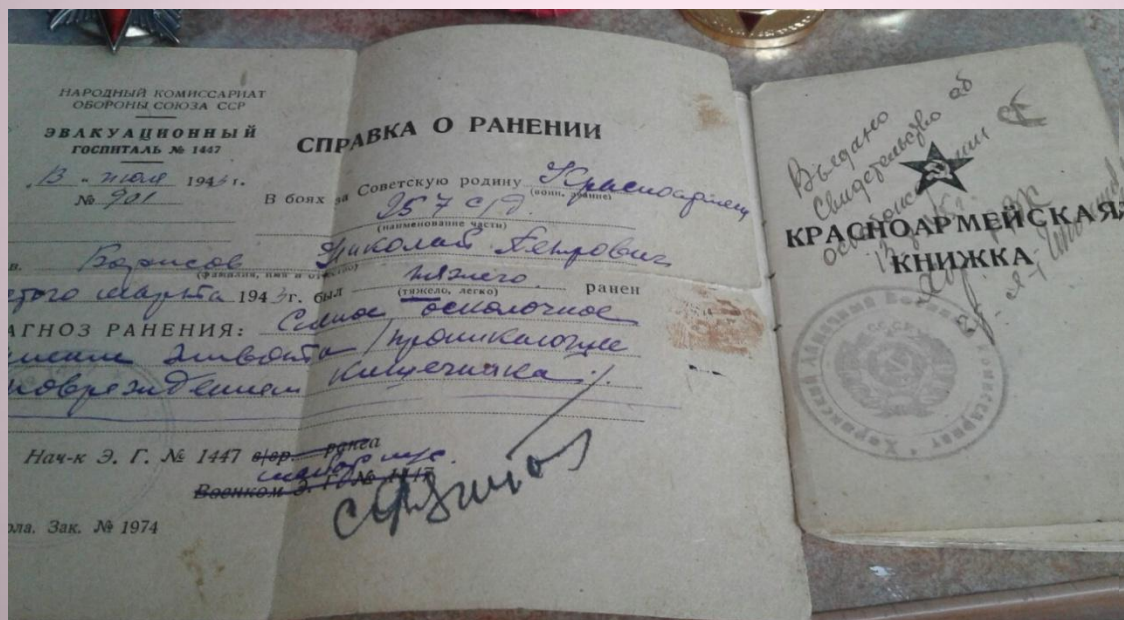 НАРОДНЫЙ КОМИССАРИАТ
ОБОРОНЫ СОЮЗА ССР
ЭВАКУАЦИОННЫЙ
ГОСПИТАЛЬ № 1447
„13 " июля 1943 г.
№ 901
СПРАВКА О РАНЕНИИ
В боях за Советскую родину Красноармеец
(воин. звание)
257 с/д.
(наименование части)
Борисов Николай Петрович
(фамилия, имя и отчество)
марта 1943 г. был тяжело ранен
(тяжело, легко)
АГНОЗ РАНЕНИЯ: Слепое осколочное
живота /проникающее
повреждением кишечника /.
Нач-к Э. Г. № 1447
майор м/с.
Военком Э. Г. № 1447
ола. Зак. № 1974
Выдано
Свидетельство об
КРАСНОАРМЕЙСКАЯ
КНИЖКА
СССР